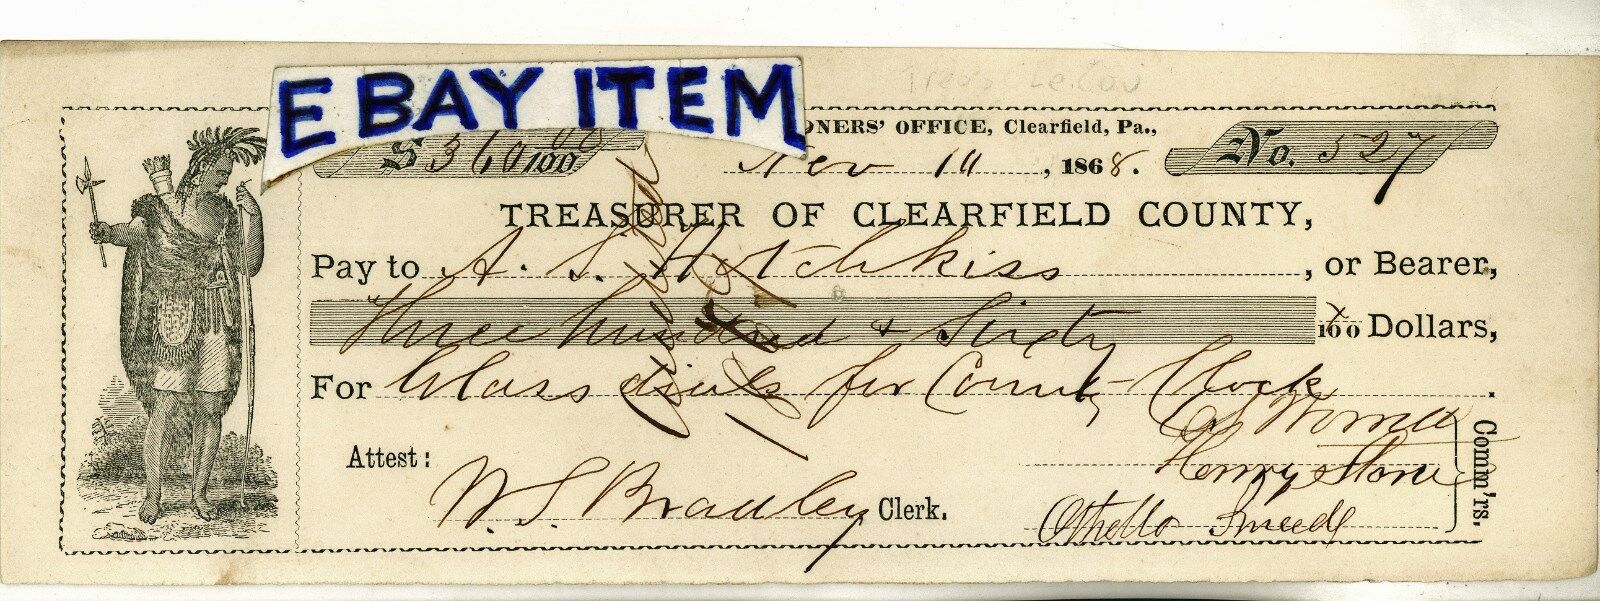 EBAY ITEM
ONERS' OFFICE, Clearfield, Pa.,
$ 360 00/100
Nov 10, 1868. No. 527
TREASURER OF CLEARFIELD COUNTY,
Pay to A. S. Hotchkiss, or Bearer,
Three hundred & Sixty x/100 Dollars,
For Glass dials for County Clock.
Henry Stone
Attest: W. S. Bradley Clerk.
Othello Smeed
Comm'rs.